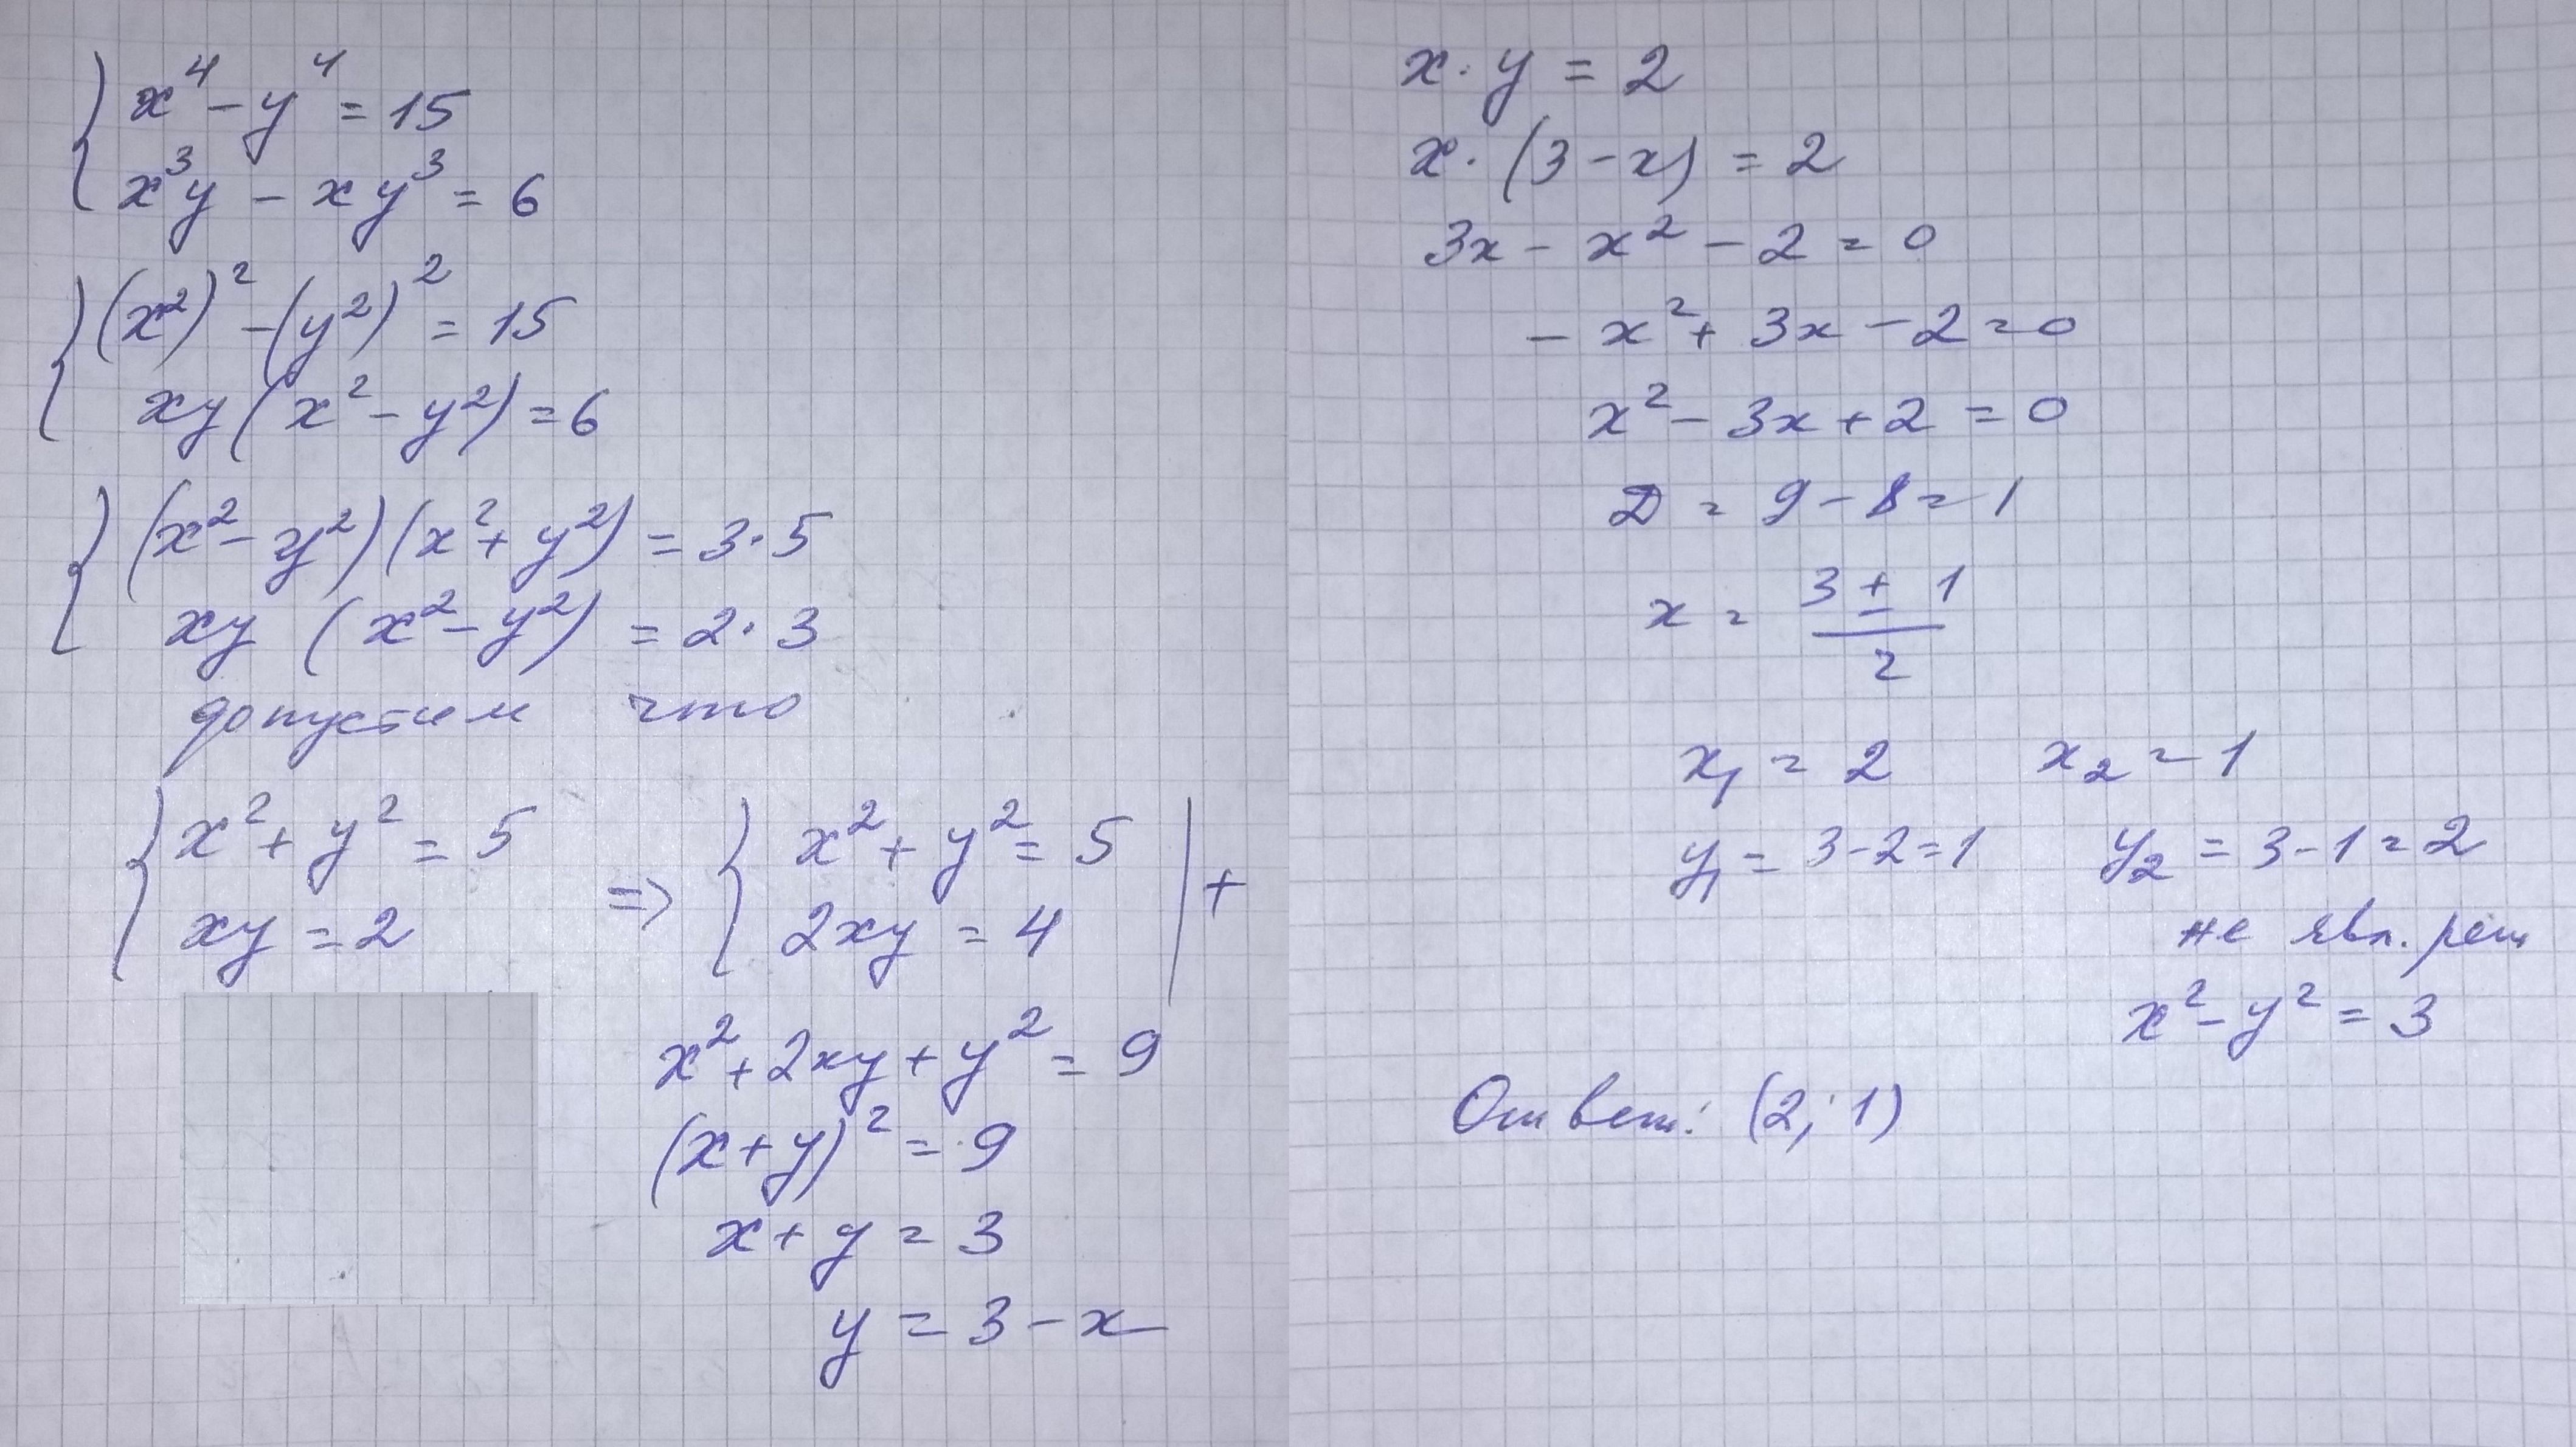 x⁴ - y⁴ = 15
x³y - xy³ = 6
(x²)² - (y²)² = 15
xy(x² - y²) = 6
(x² - y²)(x² + y²) = 3·5
xy (x² - y²) = 2·3
допустим что
x² + y² = 5
xy = 2
=> x² + y² = 5 | +
2xy = 4
x² + 2xy + y² = 9
(x + y)² = 9
x + y = 3
y = 3 - x
x·y = 2
x·(3 - x) = 2
3x - x² - 2 = 0
- x² + 3x - 2 = 0
x² - 3x + 2 = 0
D = 9 - 8 = 1
x = (3 ± 1)/2
x₁ = 2 x₂ = 1
y₁ = 3 - 2 = 1 y₂ = 3 - 1 = 2
не явл. реш
x² - y² = 3
Ответ: (2; 1)